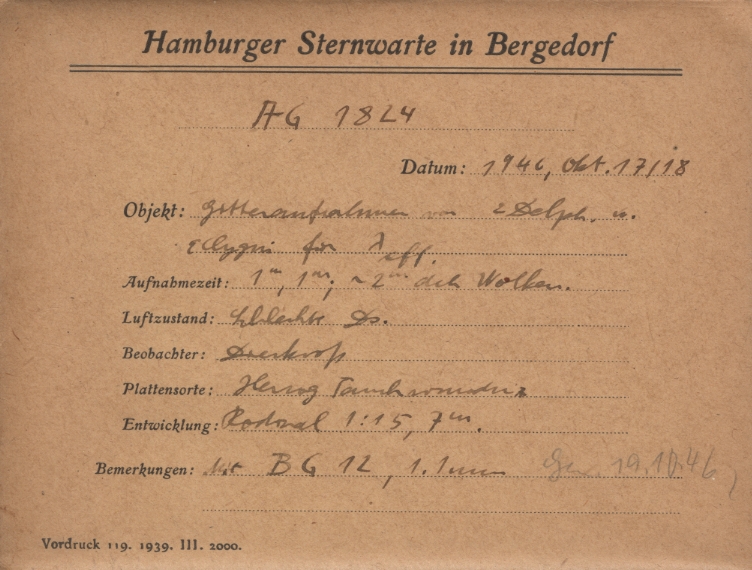 Hamburger Sternwarte in Bergedorf
AG 1824
Datum: 1946, Okt. 17/18
Objekt: Gitteraufnahmen von ε Delph. u.
ε Cygni für λ eff.
Aufnahmezeit: 1ᵐ, 1ᵐ, ~2ᵐ dch Wolken.
Luftzustand: Schlechte Ds.
Beobachter: Dieckvoß
Plattensorte: Herzog
Entwicklung: Rodinal 1:15, 7ᵐ.
Bemerkungen: Mit BG 12, 1.1mm 19.10.46
Vordruck 119. 1939. III. 2000.